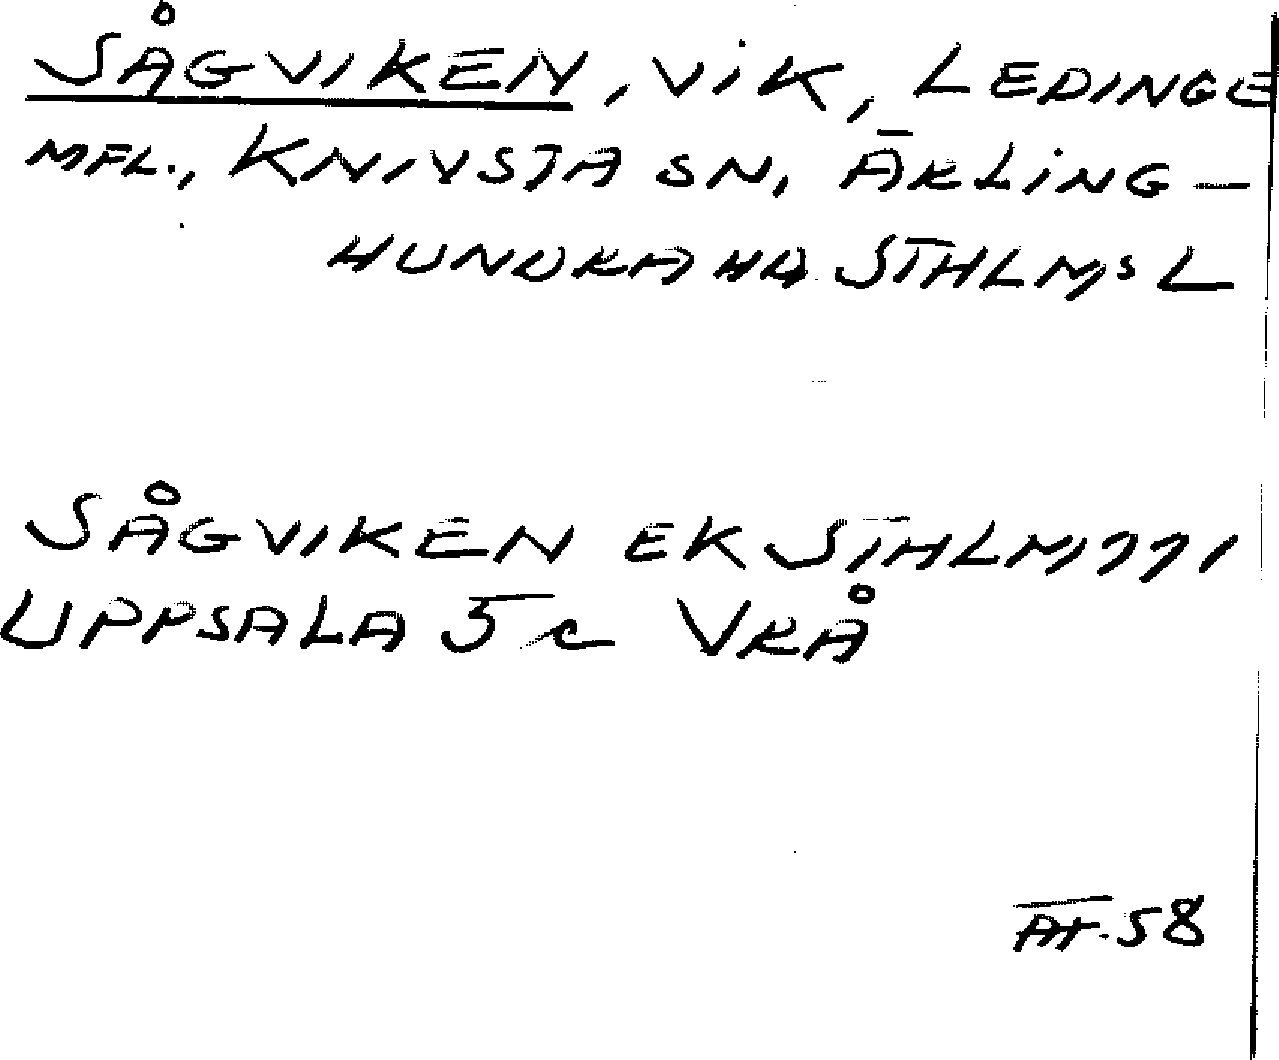 SÅGVIKEN, VIK, LEDINGE
MFL., KNIVSTA SN, ÄRLING-
HUNDRA HD STHLMS L
SÅGVIKEN EK STHLM 771
UPPSALA 5c VRÅ
AF. 58